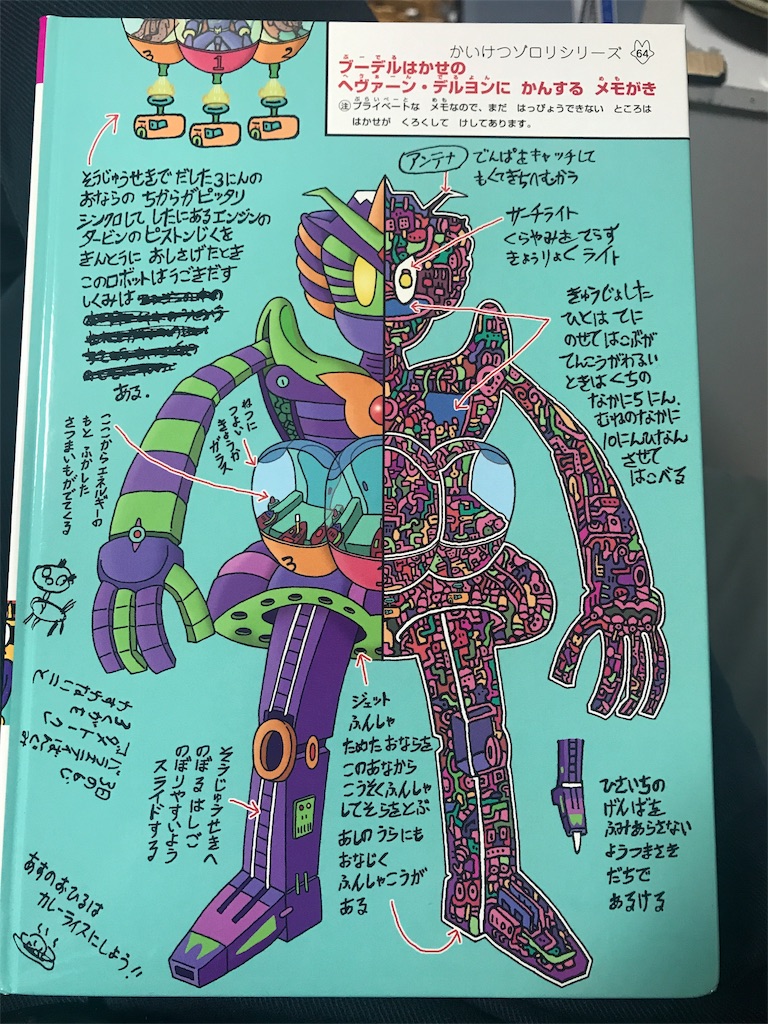 かいけつゾロリシリーズ 64
ブーデルはかせの
ヘヴァーン・デルヨンに かんする メモがき
注プライベートな メモなので、まだ はっぴょうできない ところは
はかせが くろくして けしてあります。
3
1
2
そうじゅうせきで だした3にんの
おならの ちからが ピッタリ
シンクロして したにあるエンジンの
タービンの ピストンじくを
きんとうに おしさげたとき
このロボットは うごきだす
しくみは
ある.
アンテナ でんぱをキャッチして
もくてきちへむかう
サーチライト
くらやみをてらす
きょうりょくライト
きゅうじょした
ひとは てに
のせて はこぶが
てんこうがわるい
ときは くちの
なかに5にん、
むねのなかに
10にんひなん
させて
はこべる
ねつに
つよい
きょうか
ガラス
ここからエネルギーの
もと ふかした
さつまいもがでてくる
3
3日のよじ
わすれないこと
そうじゅうせきへ
のぼる はしご
のぼりやすいよう
スライドする
ジェット
ふんしゃ
ためた おならを
このあなから
こうそくふんしゃ
してそらをとぶ
あしの うらにも
おなじく
ふんしゃこうが
ある
ひさいちの
げんばを
ふみあらさない
ようつまさき
だちで
あるける
あすのおひるは
カレーライスにしよう!!